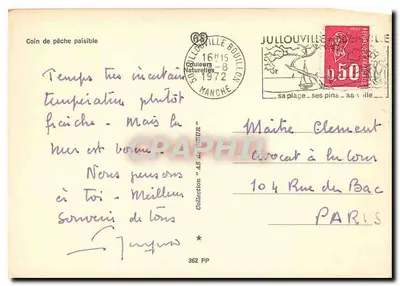 Coin de pêche paisible
Couleurs
Naturelles
50 BULLOUVILLE BOUILLON
16H15
-8
1972
MANCHE
JULLOUVILLE
sa plage.. ses pins.. sa ville..
0,50
Temps très incertain
température plutôt
fraîche - Mais la
mer est bonne.
Nous pensons
à toi - Meilleur
Souvenir de tous
Collection "AS de CŒUR"
Maître Clement
avocat à la Cour
104 Rue du Bac
PARIS
362 PP